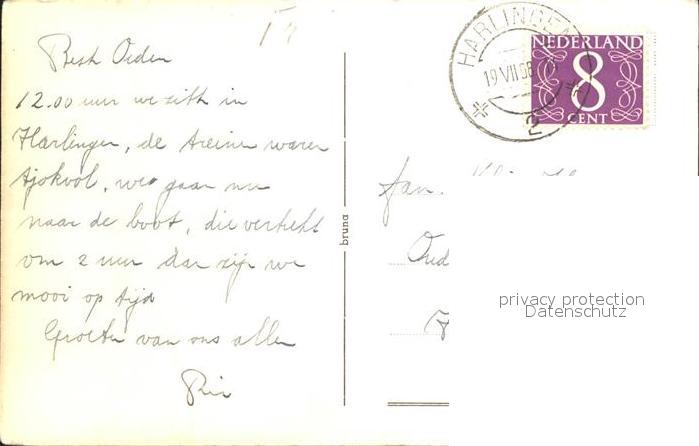 Besth Oiden
12.00 uur we zitten in
Harlingen, de treinen waren
tjokvol, we gaan nu
naar de boot, die vertrekt
om 2 uur dan zijn we
mooi op tijd
Groeten van ons allen
Rie
bruna
HARLINGEN
19 VII 58
2
NEDERLAND
8
CENT
fam.
Oud
privacy protection
Datenschutz